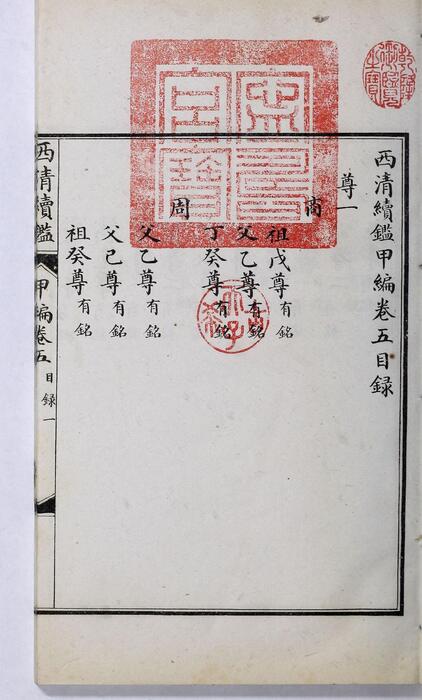 西清續鑑甲編卷五目録
尊一
商
祖戊尊有銘
父乙尊有銘
丁癸尊有銘
周
父乙尊有銘
父己尊有銘
祖癸尊有銘
西清續鑑
甲編卷五
目録
一